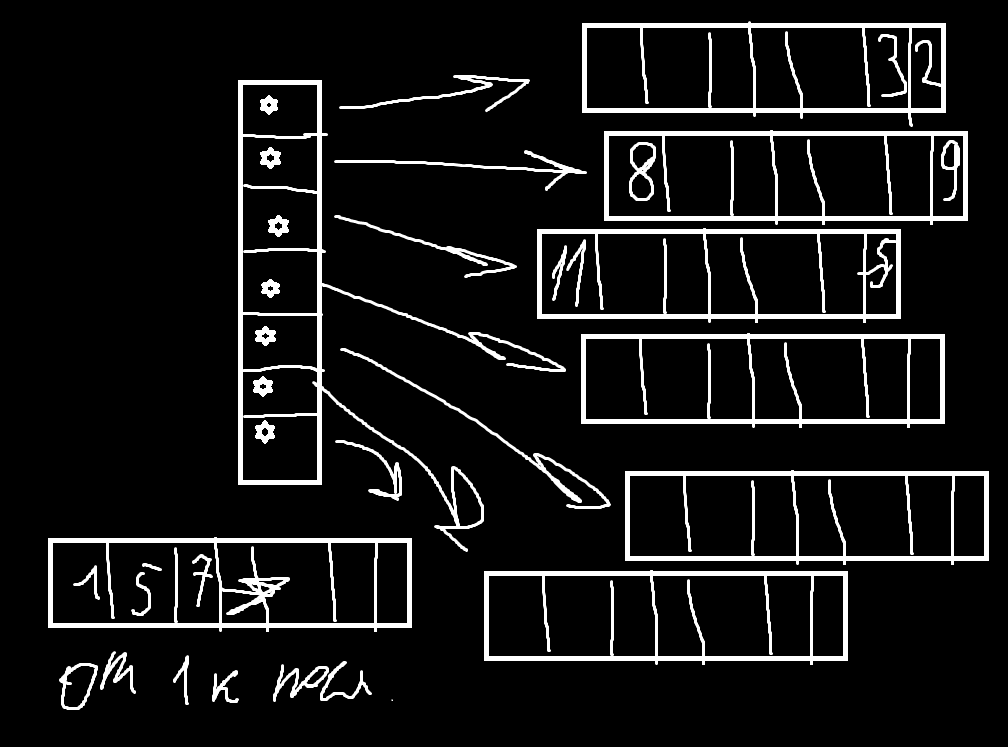 3 2
*
8 9
*
11 -5
*
*
*
*
*
1 5 7
от 1 к